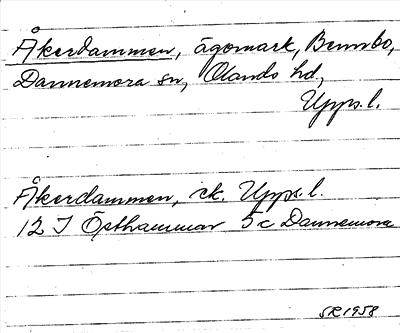 Åkerdammen, ägomark, Bennbo,
Dannemora sn, Olands hd,
Upps.l.
Åkerdammen, ek. Upps.l.
12 I Östhammar 5c Dannemora
SR1958